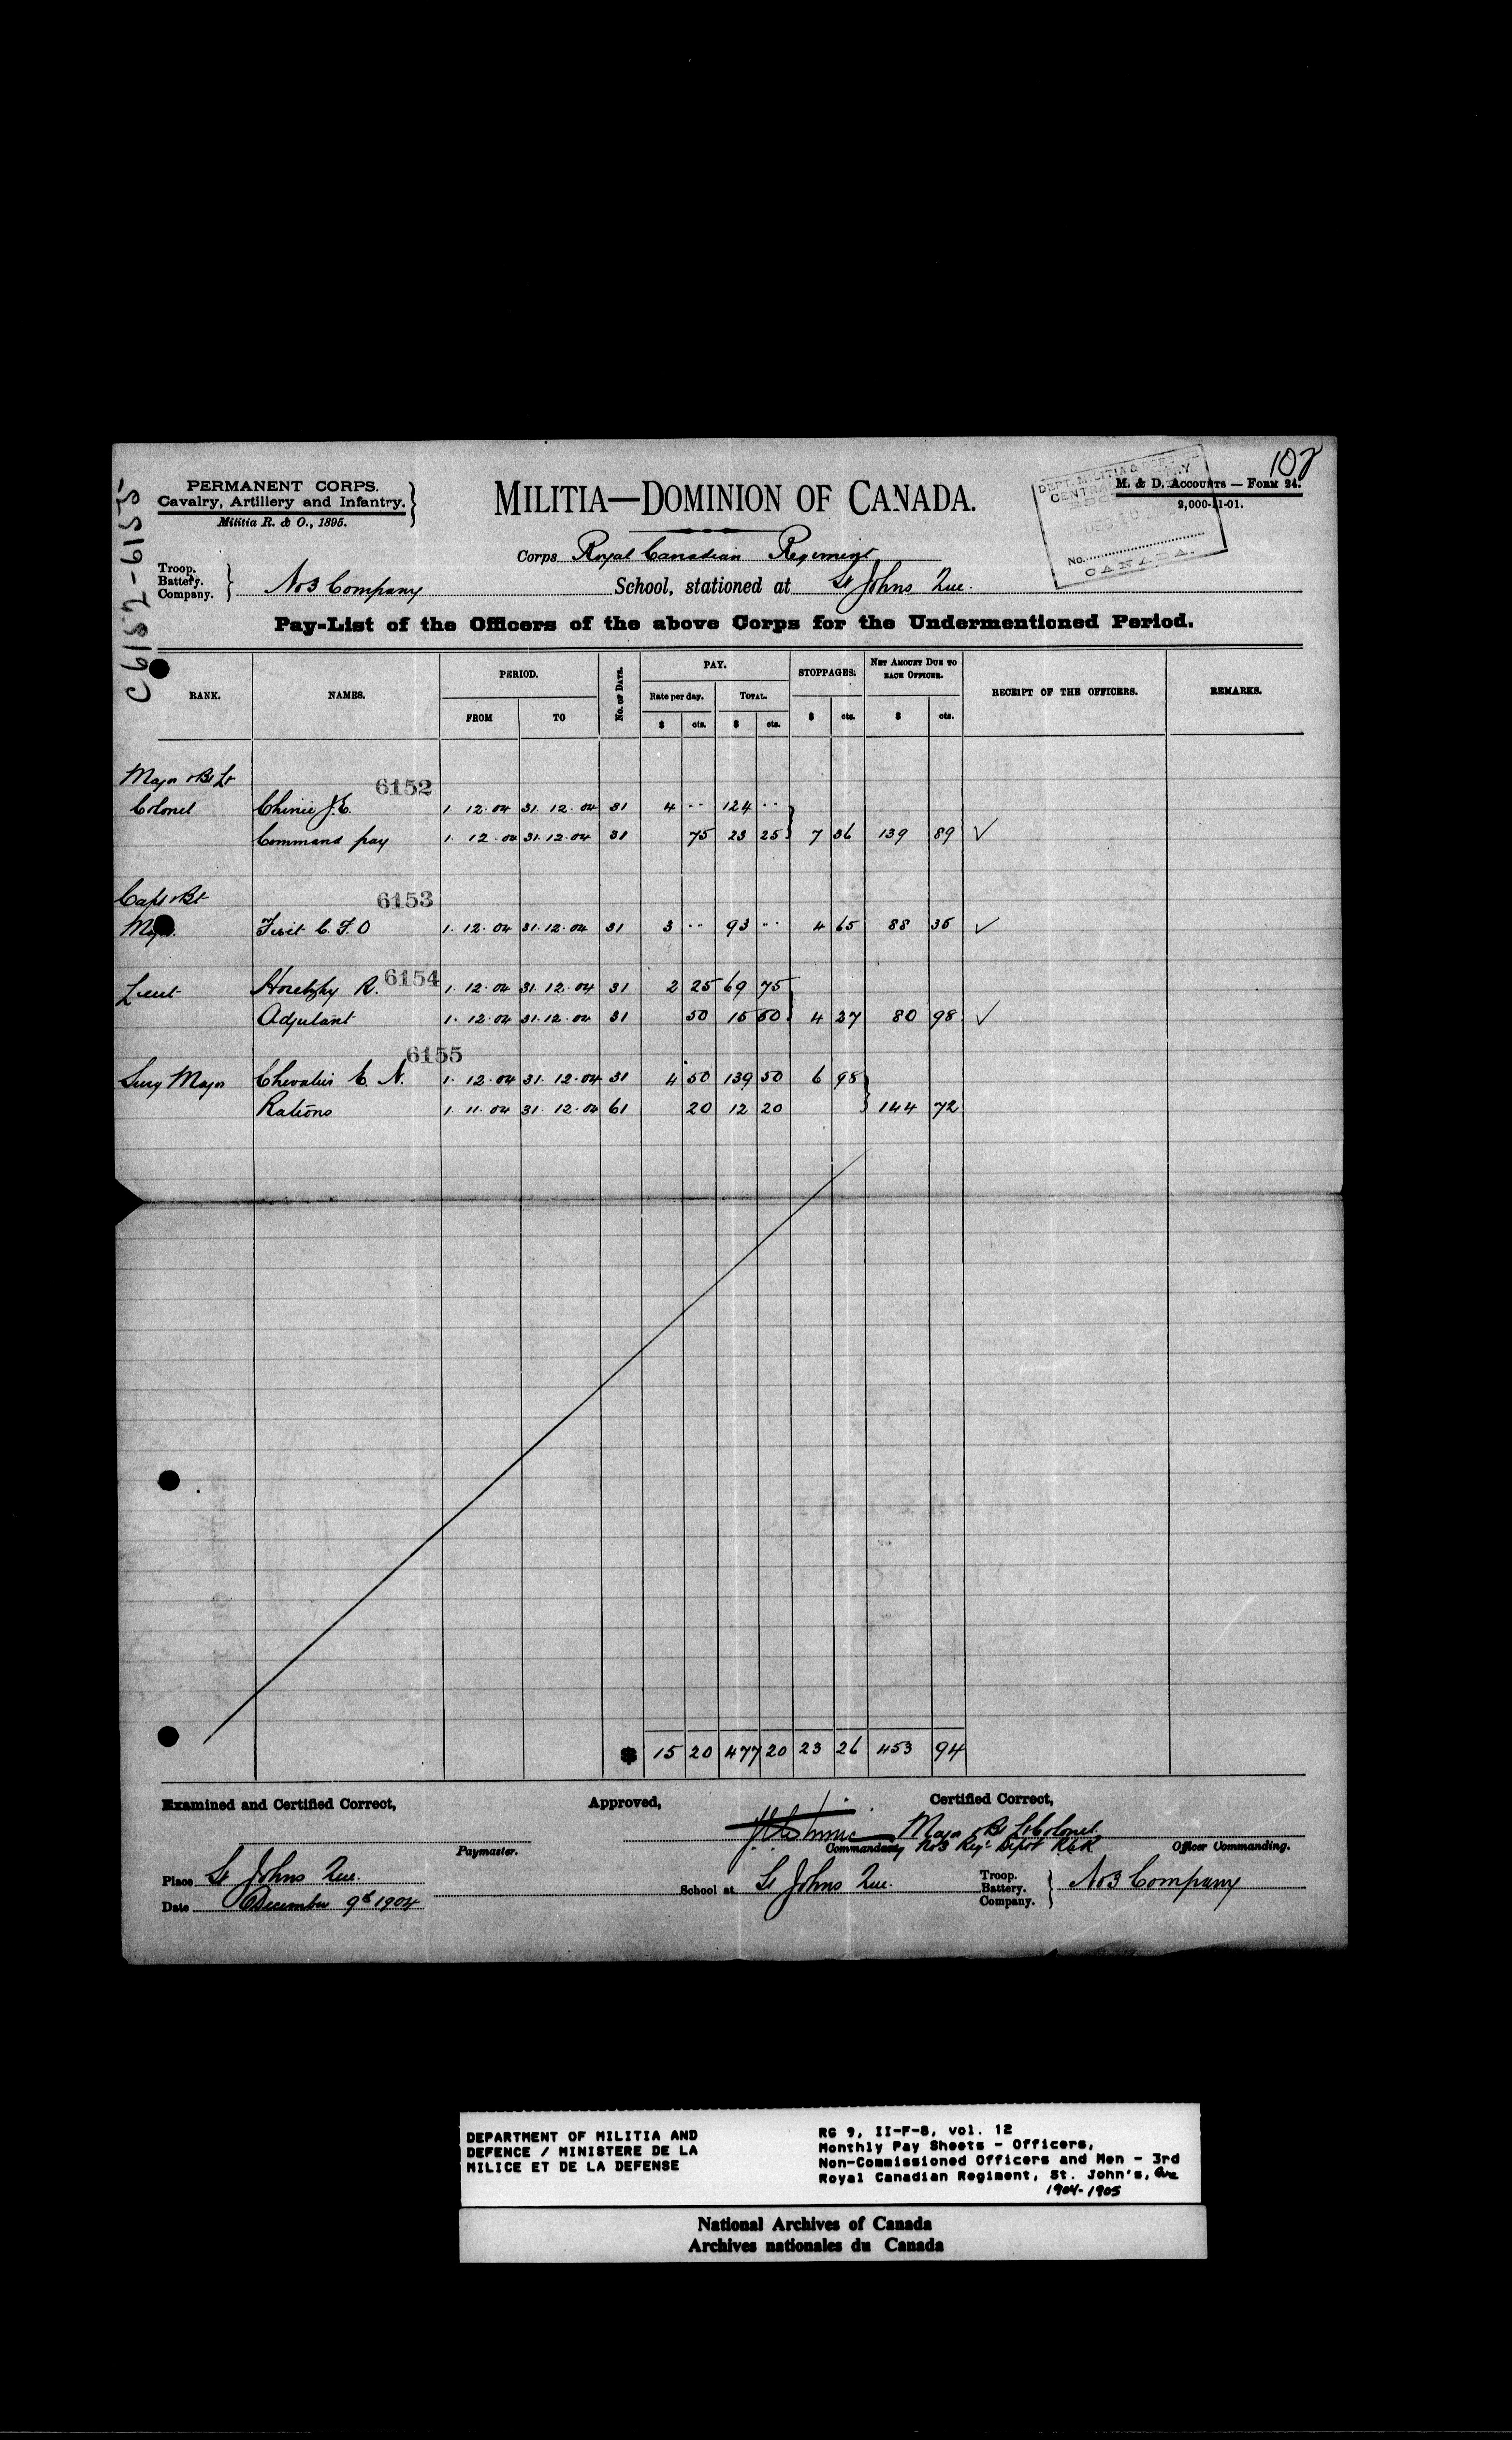 108
PERMANENT CORPS.
Cavalry, Artillery and Infantry.
Militia R. & O., 1895.
MILITIA—DOMINION OF CANADA.
M. & D. ACCOUNTS — FORM 24.
2,000-11-01.
DEPT. MILITIA &
CENTRAL REGISTRY
DEC 10
No.
CANADA.
C 6152-6155
Corps Royal Canadian Regiment
Troop.
Battery.
Company.
No3 Company
School, stationed at St Johns Que.
Pay-List of the Officers of the above Corps for the Undermentioned Period.
RANK. NAMES. PERIOD. No. of Days. PAY. STOPPAGES. NET AMOUNT DUE TO EACH OFFICER. RECEIPT OF THE OFFICERS. REMARKS.
Rate per day. TOTAL.
FROM TO $ cts. $ cts. $ cts. $ cts.
Major & Bt Lt 6152
Colonel Chinic J.E. 1. 12. 04 31. 12. 04 31 4 .. 124 ..
Command pay 1. 12. 04 31. 12. 04 31 75 23 25 7 36 139 89 ✓
Capt & Bt 6153
Major. C. F. O 1. 12. 04 31. 12. 04 31 3 .. 93 .. 4 65 88 35 ✓
Lieut Horetzky R. 6154 1. 12. 04 31. 12. 04 31 2 25 69 75
Adjutant 1. 12. 04 31. 12. 04 31 50 15 50 4 27 80 98 ✓
6155
Surg Major Chevalier E. N. 1. 12. 04 31. 12. 04 31 4 50 139 50 6 98
Rations 1. 11. 04 31. 12. 04 61 20 12 20 144 72
15 20 477 20 23 26 453 94
Examined and Certified Correct, Approved, Certified Correct,
J E Chinic Major & Bt Lt Colonel.
Paymaster. Commandant No3 Regt Depot RCR Officer Commanding.
Place St Johns Que.
School at St Johns Que.
Troop.
Battery.
Company.
No3 Company
Date December 9th 1904
DEPARTMENT OF MILITIA AND
DEFENCE / MINISTERE DE LA
MILICE ET DE LA DEFENSE
RG 9, II-F-8, vol. 12
Monthly Pay Sheets - Officers,
Non-Commissioned Officers and Men - 3rd
Royal Canadian Regiment, St. John's, Que
1904-1905
National Archives of Canada
Archives nationales du Canada